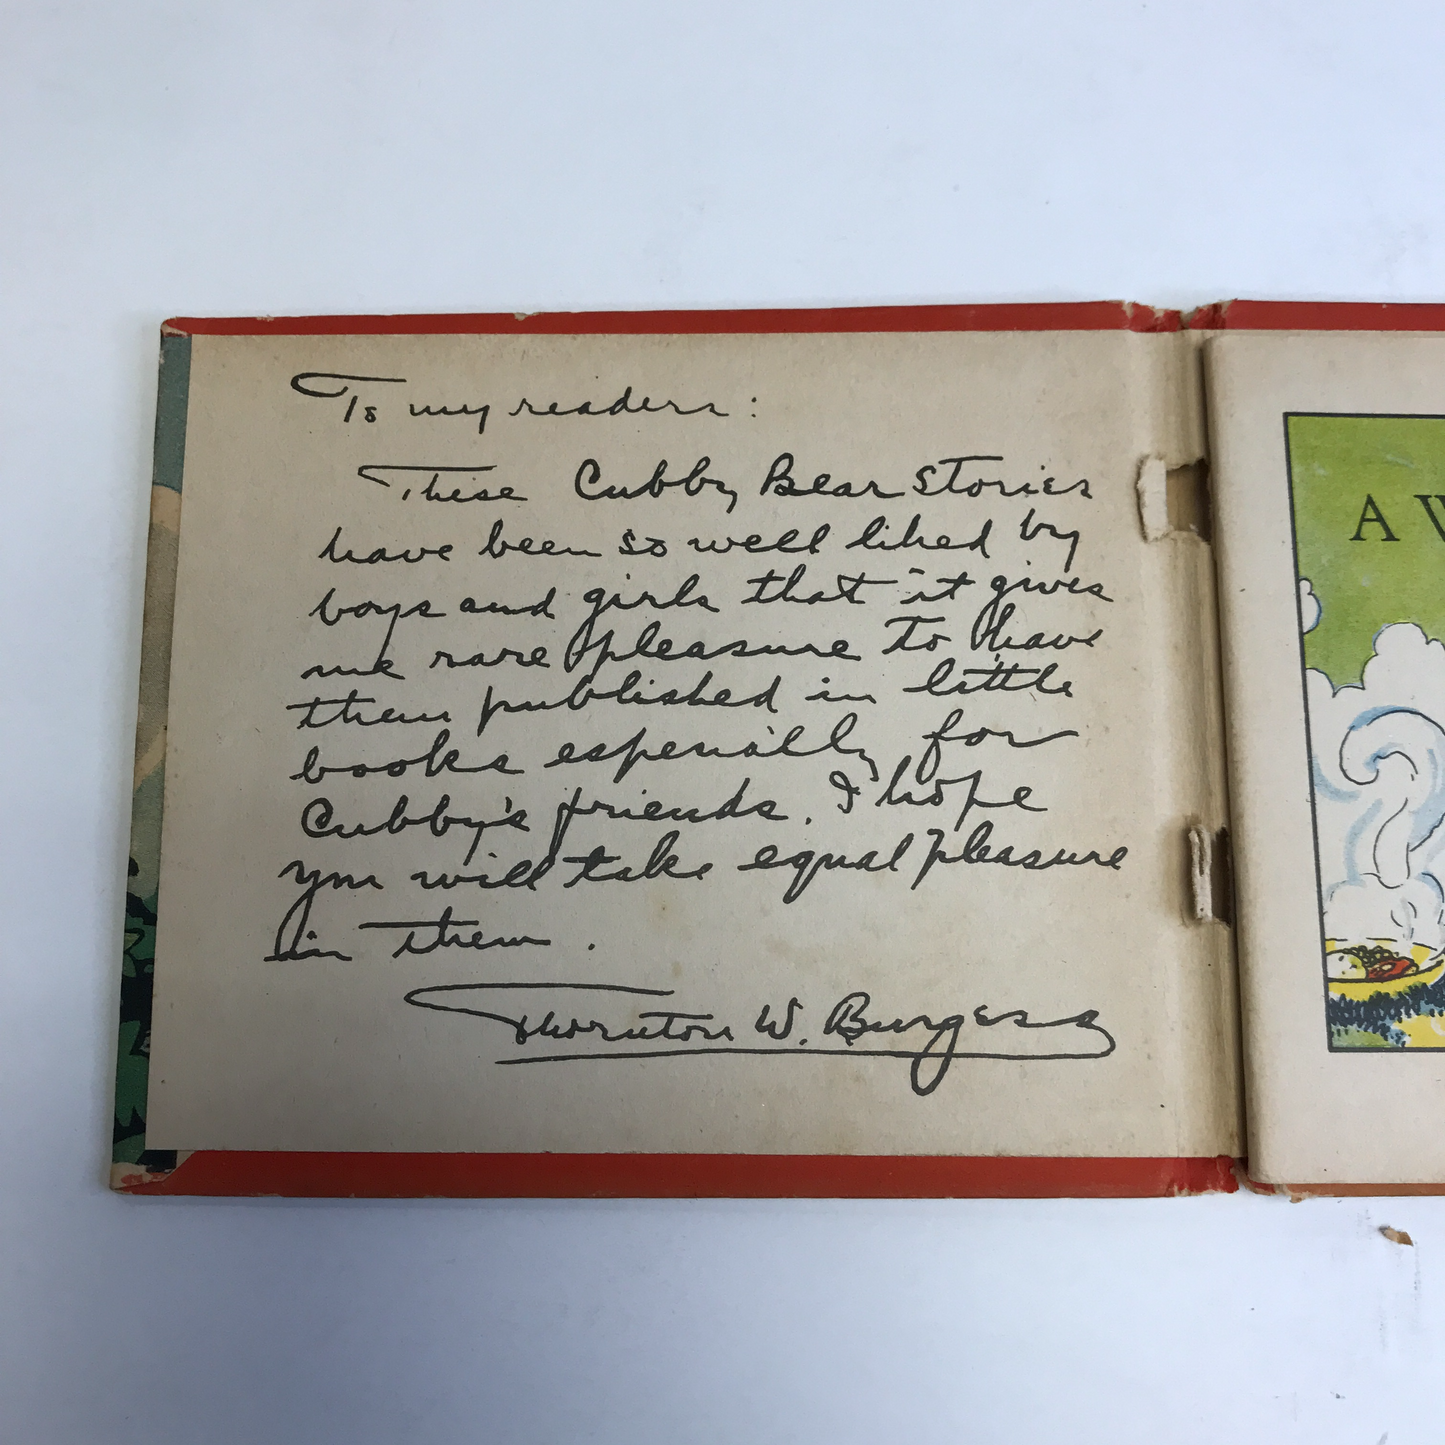 To my readers:
These Cubby Bear Stories
have been so well liked by
boys and girls that it gives
me rare pleasure to have
them published in little
books especially for
Cubby's friends. I hope
you will take equal pleasure
in them.
Thornton W. Burgess
A